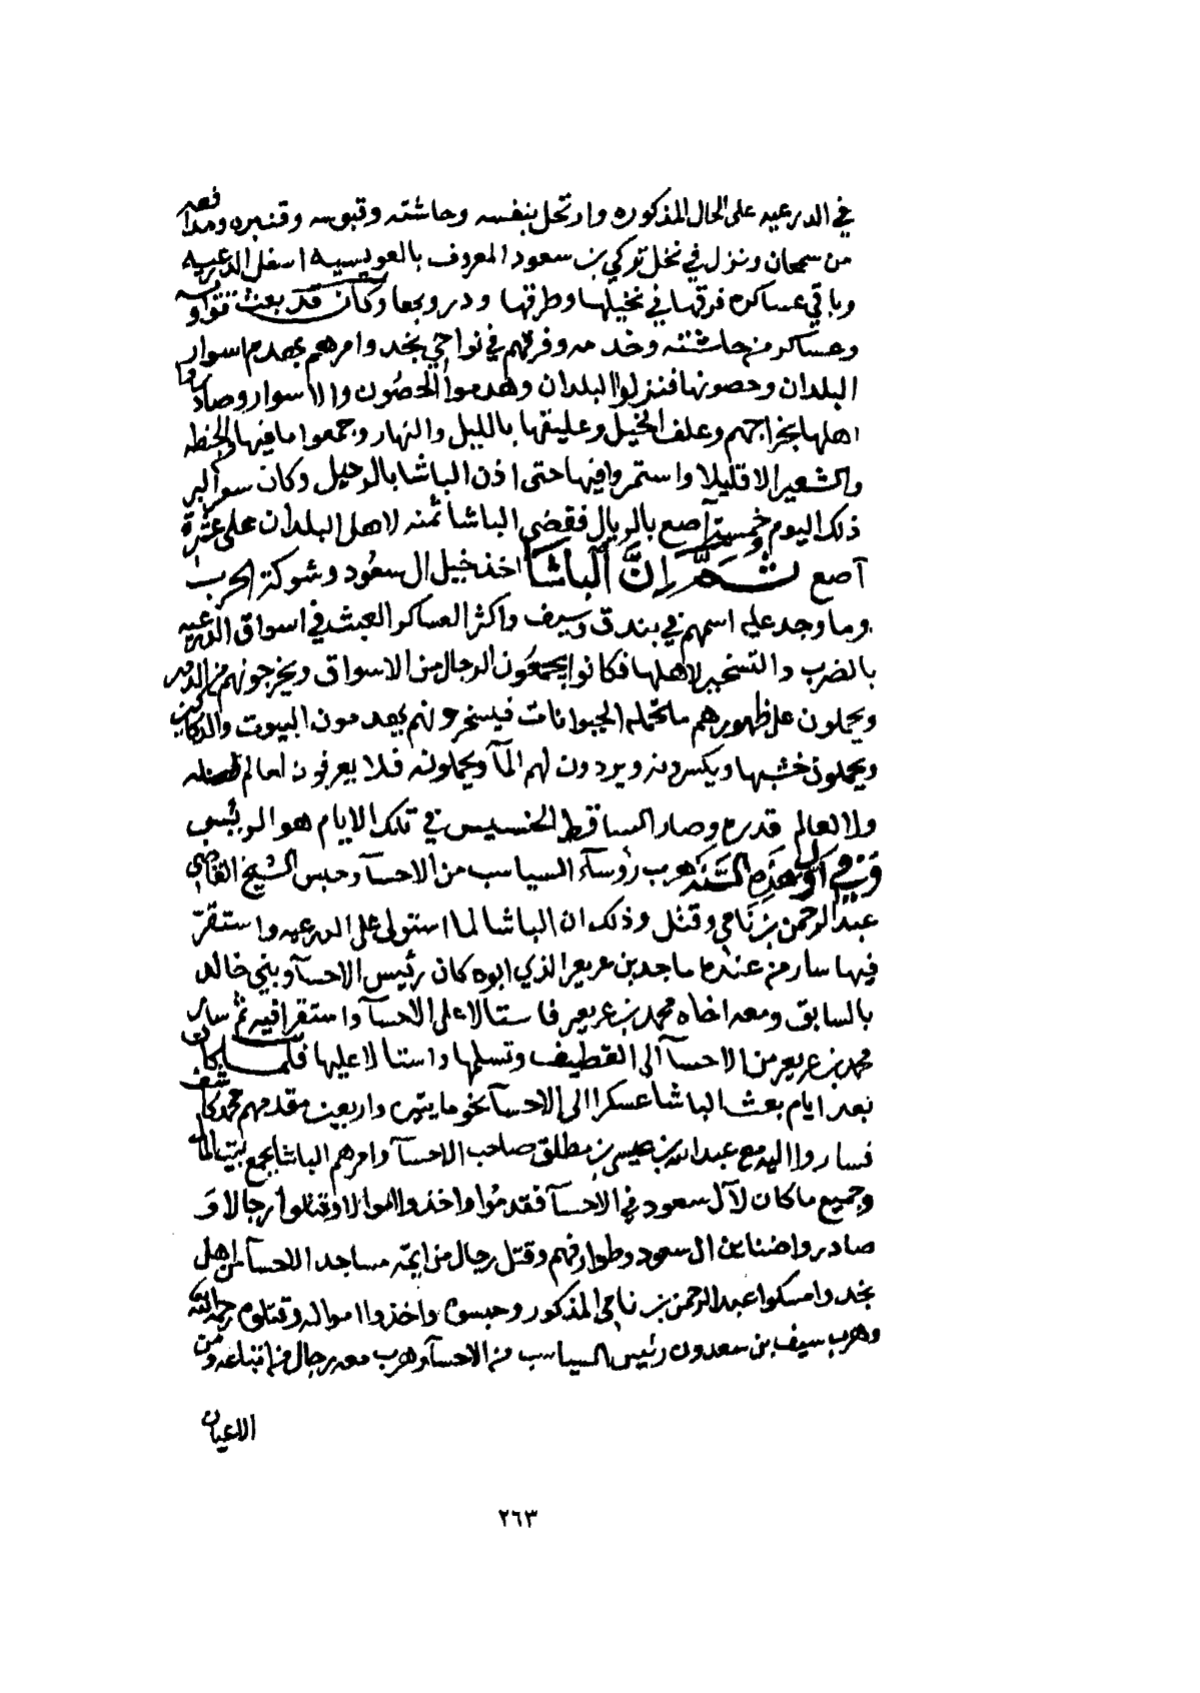 في الدرعيه على الحال المذكوره وارتحل بنفسه وحاشته وقبوسه وقنبره ومدافعه
من سمحان ونزل في نخل تركي بن سعود المعروف بالعويسيه اسفل الدرعيه
وباقي عساكره فرقها في نخيلها وطرقها ودروبها وكان قد بعث
وعساكر من حاشته وخدمه وفرقهم في نواحي نجد وامرهم بهدم اسوار
البلدان وحصونها فنزلوا البلدان وهدموا الحصون والاسوار وصادروا
اهلها بخراجهم وعلف الخيل وعليقها بالليل والنهار وجمعوا ما فيها من الحنطه
والشعير الا قليلا واستمروا فيها حتى اذن الباشا بالرحيل وكان سعر البر
ذلك اليوم خمسة آصع بالريال فقضى الباشا ثمنه لاهل البلدان على عشرة
آصع ثم إنَّ الباشا اخذ خيل ال سعود وشوكة الحرب
وما وجد عليه اسمهم في بندق وسيف واكثر العساكر العبث في اسواق الدرعيه
بالضرب والتسخير لاهلها فكانوا يجمعون الرجال من الاسواق ويخرجونهم من الدور
ويحملون على ظهورهم ما تحمله الحيوانات فيسخرونهم يهدمون البيوت والدكاكين
ويحملون خشبها ويكسرونه ويردون لهم المآ ويحملونه فلا يعرفون لعالم فضله
ولا لعالم قدره وصار الساقط الخسيس في تلك الايام هو الرئيس
وفي أول هذه السنة هرب رؤسآء السياسب من الاحسآ وحبس الشيخ القاضي
عبد الرحمن بن نامي وقتل وذلك ان الباشا لما استولى على الدرعيه واستقرّ
فيها سار من عنده ماجد بن عريعر الذي ابوه كان رئيس الاحسآ وبني خالد
بالسابق ومعه اخاه محمد بن عريعر فاستالا على الاحسآ واستقرا فيه ثم سار
محمد بن عريعر من الاحسآ الى القطيف وتسلمها واستالا عليها فلما كان
بعد ايام بعث الباشا عسكرا الى الاحسآ نحو مايتين واربعين مقدمهم محمد كاشف
فساروا اليه مع عبد الله بن عيسى بن مطلق صاحب الاحسآ وامرهم الباشا بجمع بيت المال
وجميع ما كان لآل سعود في الاحسآ فقدموا واخذوا اموالا وقتلوا رجالا و
صادروا اناسا من ال سعود وطوارفهم وقتل رجال من ايمة مساجد الاحسآ من اهل
نجد وامسكوا عبد الرحمن بن نامي المذكور وحبسوه واخذوا امواله وقتلوه رحمه الله
وهرب سيف بن سعدون رئيس السياسب من الاحسآ وهرب معه رجال من اتباعه ومن
الاعيان
٢٦٣